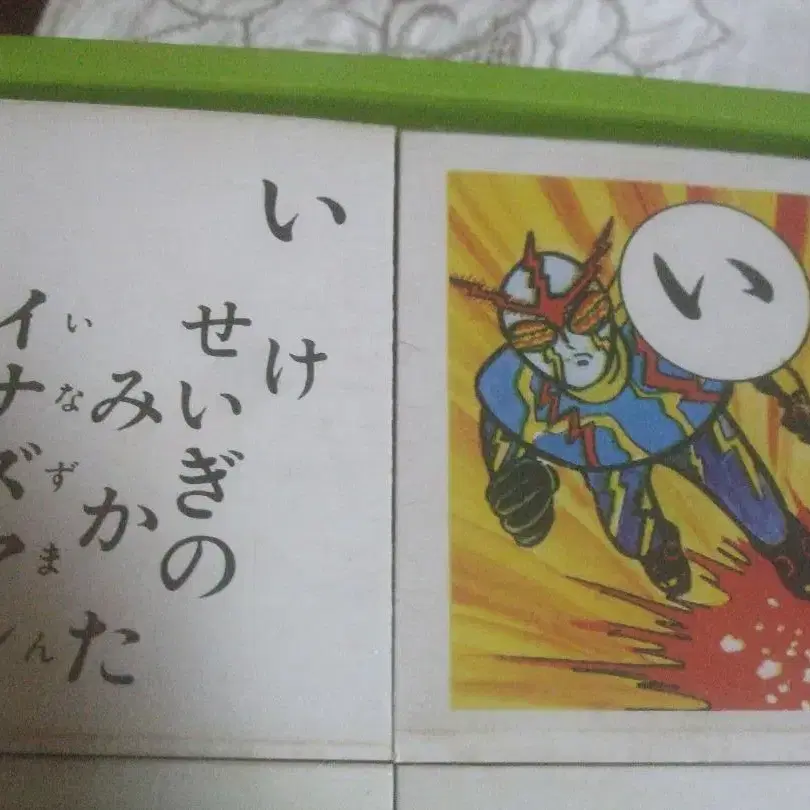 い
いけ
せいぎの
みかた
いなずまん
イナズマン